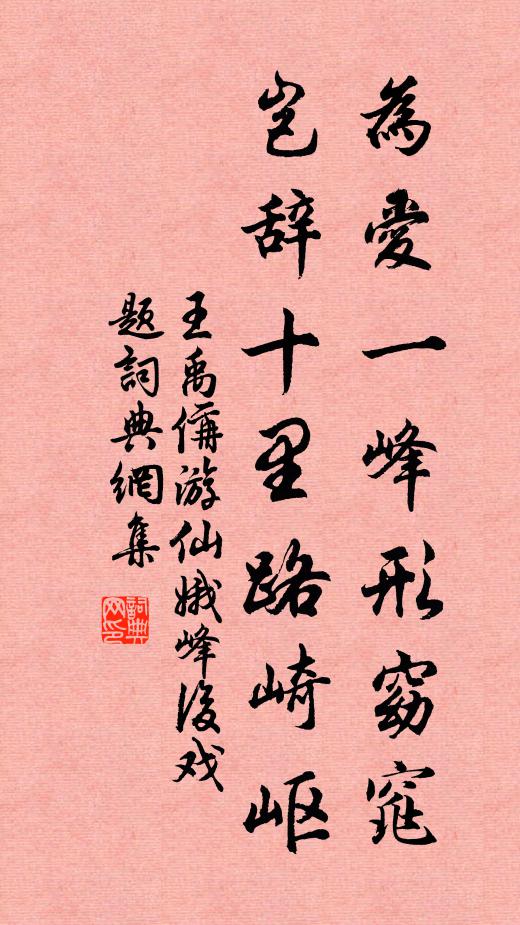 為愛一峰形窈窕
岂辞十里路崎岖
王禹偁游仙娥峰後戏
题詞典網集
詞典
网印